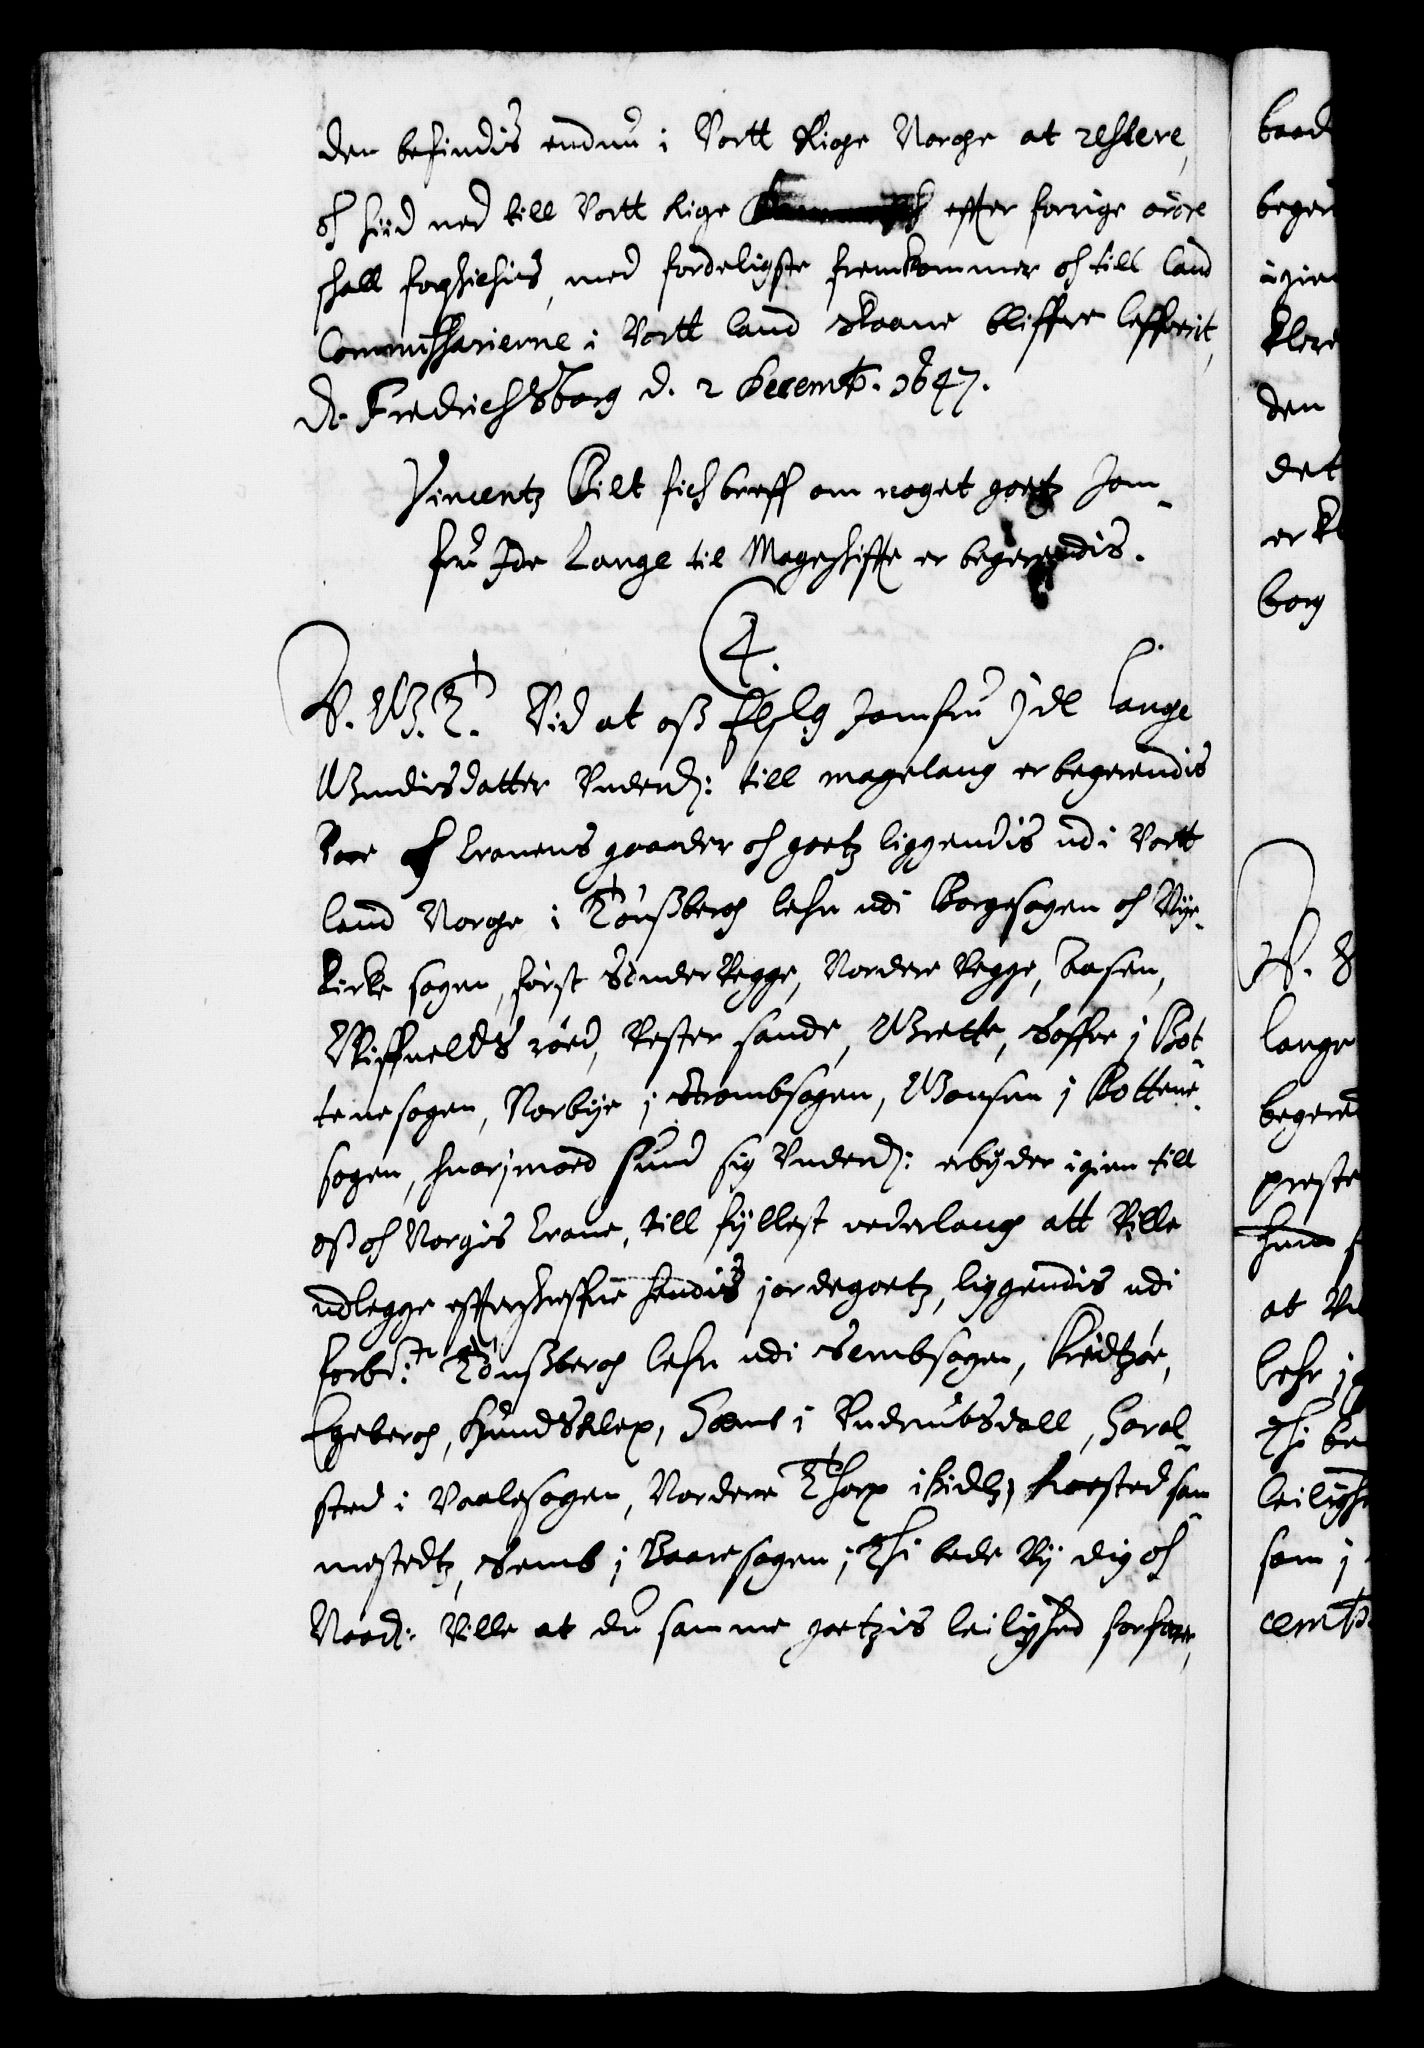 den befindis endnu i Vortt Rige Norge at restere,
och hiid ned till Vortt Rige effter forrige ordre
schall forschichis, med forderligste fremkommer och till land
Commissarierne i Vortt land Skaane bliffuer leffuerit,
D. Fredrichsborg d. 2 Decemb. 1647.
Vincentz Bilt fich breff om noget goetz Jom-
fru Ide Lange til Mageschiffte er begerendis.
4.
C. 4. G. T. Vid at oss Elsk. Jomfru Ide Lange
Gundisdatter Underd: till magelaug er begerendis
Vore och Cronens gaarder och goetz liggendis udi Vortt
land Norge i Tönssberg lehn udi Borgesogen och Nye-
kirke sogen, først Sønder Regge, Nordere Regge, Aasen,
Riffuelds röed, Vester sande, Grette, Soffue i Bot-
tenesogen, Norbye i Strombsogen, Gonsen i Bottene-
sogen, huorimoed hund sig Underd: erbyder igien till
oss och Norgis Crone, till fyllest vederlaug att Ville
udlegge effterschreffne hendis jordegoetz, liggendis udi
forbe: Tönssberg lehn udi Sembsogen,
Egeberg, Hundsklep, i Undrumbsdall, Haral-
sted i Vaalesogen, Nordere Thorp ibidh, sam-
mestedtz, Semb i Baaresogen; Thi bede Vi dig och
Naad: Ville at du samme goetzis leilighed forfarer,
baad
beger
igien
den
det
borg
Lange
begered
preste
hund
at
lehn i
Thi be
leilighe
som i
cemb.